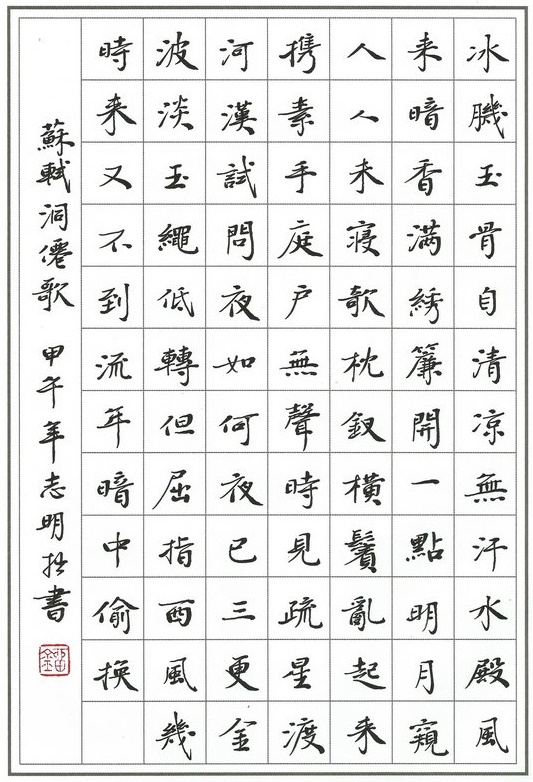 冰肌玉骨自清凉無汗水殿風
来暗香满綉簾開一點明月窺
人人未寝欹枕釵横鬢亂起来
携素手庭户無聲時見疏星渡
河漢試問夜如何夜已三更金
波淡玉繩低轉但屈指西風幾
時来又不到流年暗中偷换
蘇軾洞僊歌 甲午年志明拙書